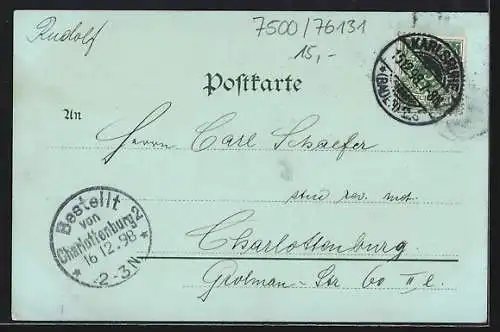 Rudolf
7500/76131
15,-
KARLSRUHE
15.12.98
(BADEN)
Postkarte
An
Herrn Carl Schaefer
stud rev. mot.
Bestellt
von
Charlottenburg 2
16/12.98
2-3N
Charlottenburg.
Grolman-Str 60 II l.